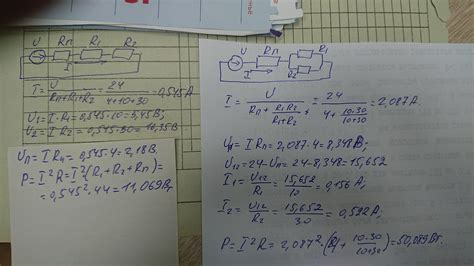 U Rп R₁ R₂
I
I = U / (Rп+R₁+R₂) = 24 / (4+10+30) = 0,545 А
U₁ = I·R₁ = 0,545·10 = 5,45 В;
U₂ = I R₂ = 0,545·30 = 16,35 В.
Uп = I Rп = 0,545·4 = 2,18 В.
P = I²R = I²(R₁+R₂+Rп) =
= 0,545²·44 = 11,069 Вт
U Rп R₁
I R₂
I = U / (Rп + R₁R₂ / (R₁+R₂)) = 24 / (4 + 10·30 / (10+30)) = 2,087 А.
Uп = I Rп = 2,087·4 = 8,348 В;
U₁₂ = 24 - Uп = 24 - 8,348 = 15,652
I₁ = U₁₂ / R₁ = 15,652 / 10 = 0,156 А;
I₂ = U₁₂ / R₂ = 15,652 / 30 = 0,592 А;
P = I²R = 2,087²·( + 10·30 / (10+30)) = 50,089 Вт.